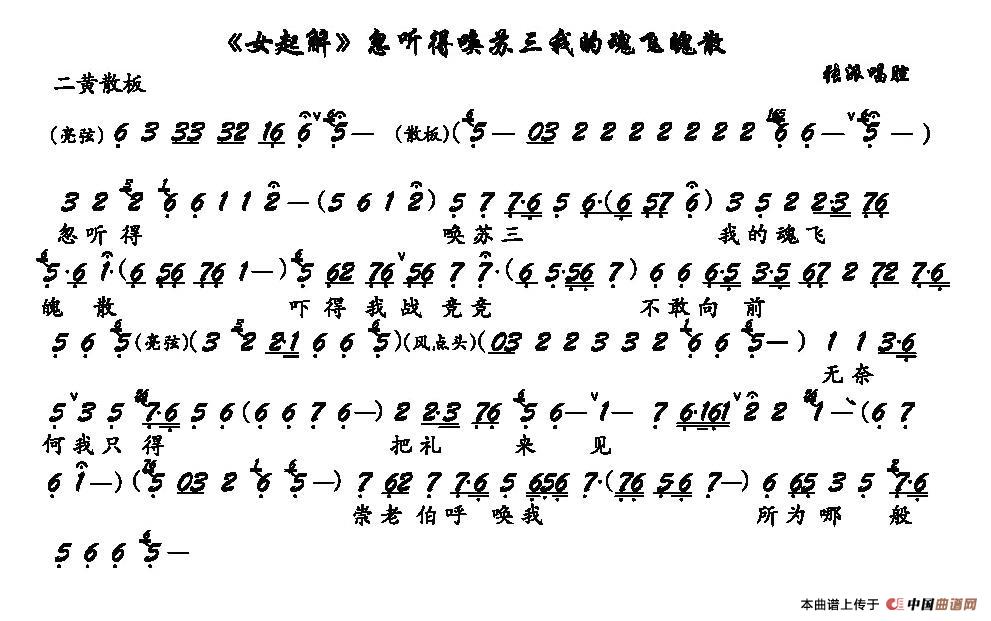 《女起解》忽听得唤苏三我的魂飞魄散
二黄散板 张派唱腔
(亮弦) 6 3 33 32 16 6 ∨ 5 — (散板) ( 5 — 03 2 2 2 2 2 2 2 6 6 — ∨ 5 — )
3 2 2 6 6 1 1 2 — ( 5 6 1 2 ) 5 7 7·6 5 6·( 6 57 6 ) 3 5 2 2·3 76
忽听得 唤苏三 我的魂飞
5·6 1·( 6 56 76 1 — ) 5 62 76 ∨ 56 7 7·( 6 5·56 7 ) 6 6 6·5 3·5 67 2 72 7·6
魄散 吓得我战兢兢 不敢向前
5 6 5 (亮弦) ( 3 2 2·1 6 6 5 ) (风点头) ( 03 2 2 3 3 2 6 6 5 — ) 1 1 3·6
无奈
5 ∨ 3 5 7·6 5 6 ( 6 6 7 6 — ) 2 2·3 76 5 6 — ∨ 1 — 7 6·161 ∨ 2 2 1 — ( 6 7
何我只得 把礼来见
6 1 — ) ( 5 03 2 6 5 — ) 7 62 7 7·6 5 656 7·( 76 56 7 — ) 6 65 3 5 7·6
崇老伯呼唤我 所为哪般
5 6 6 5 —
本曲谱上传于 中国曲谱网